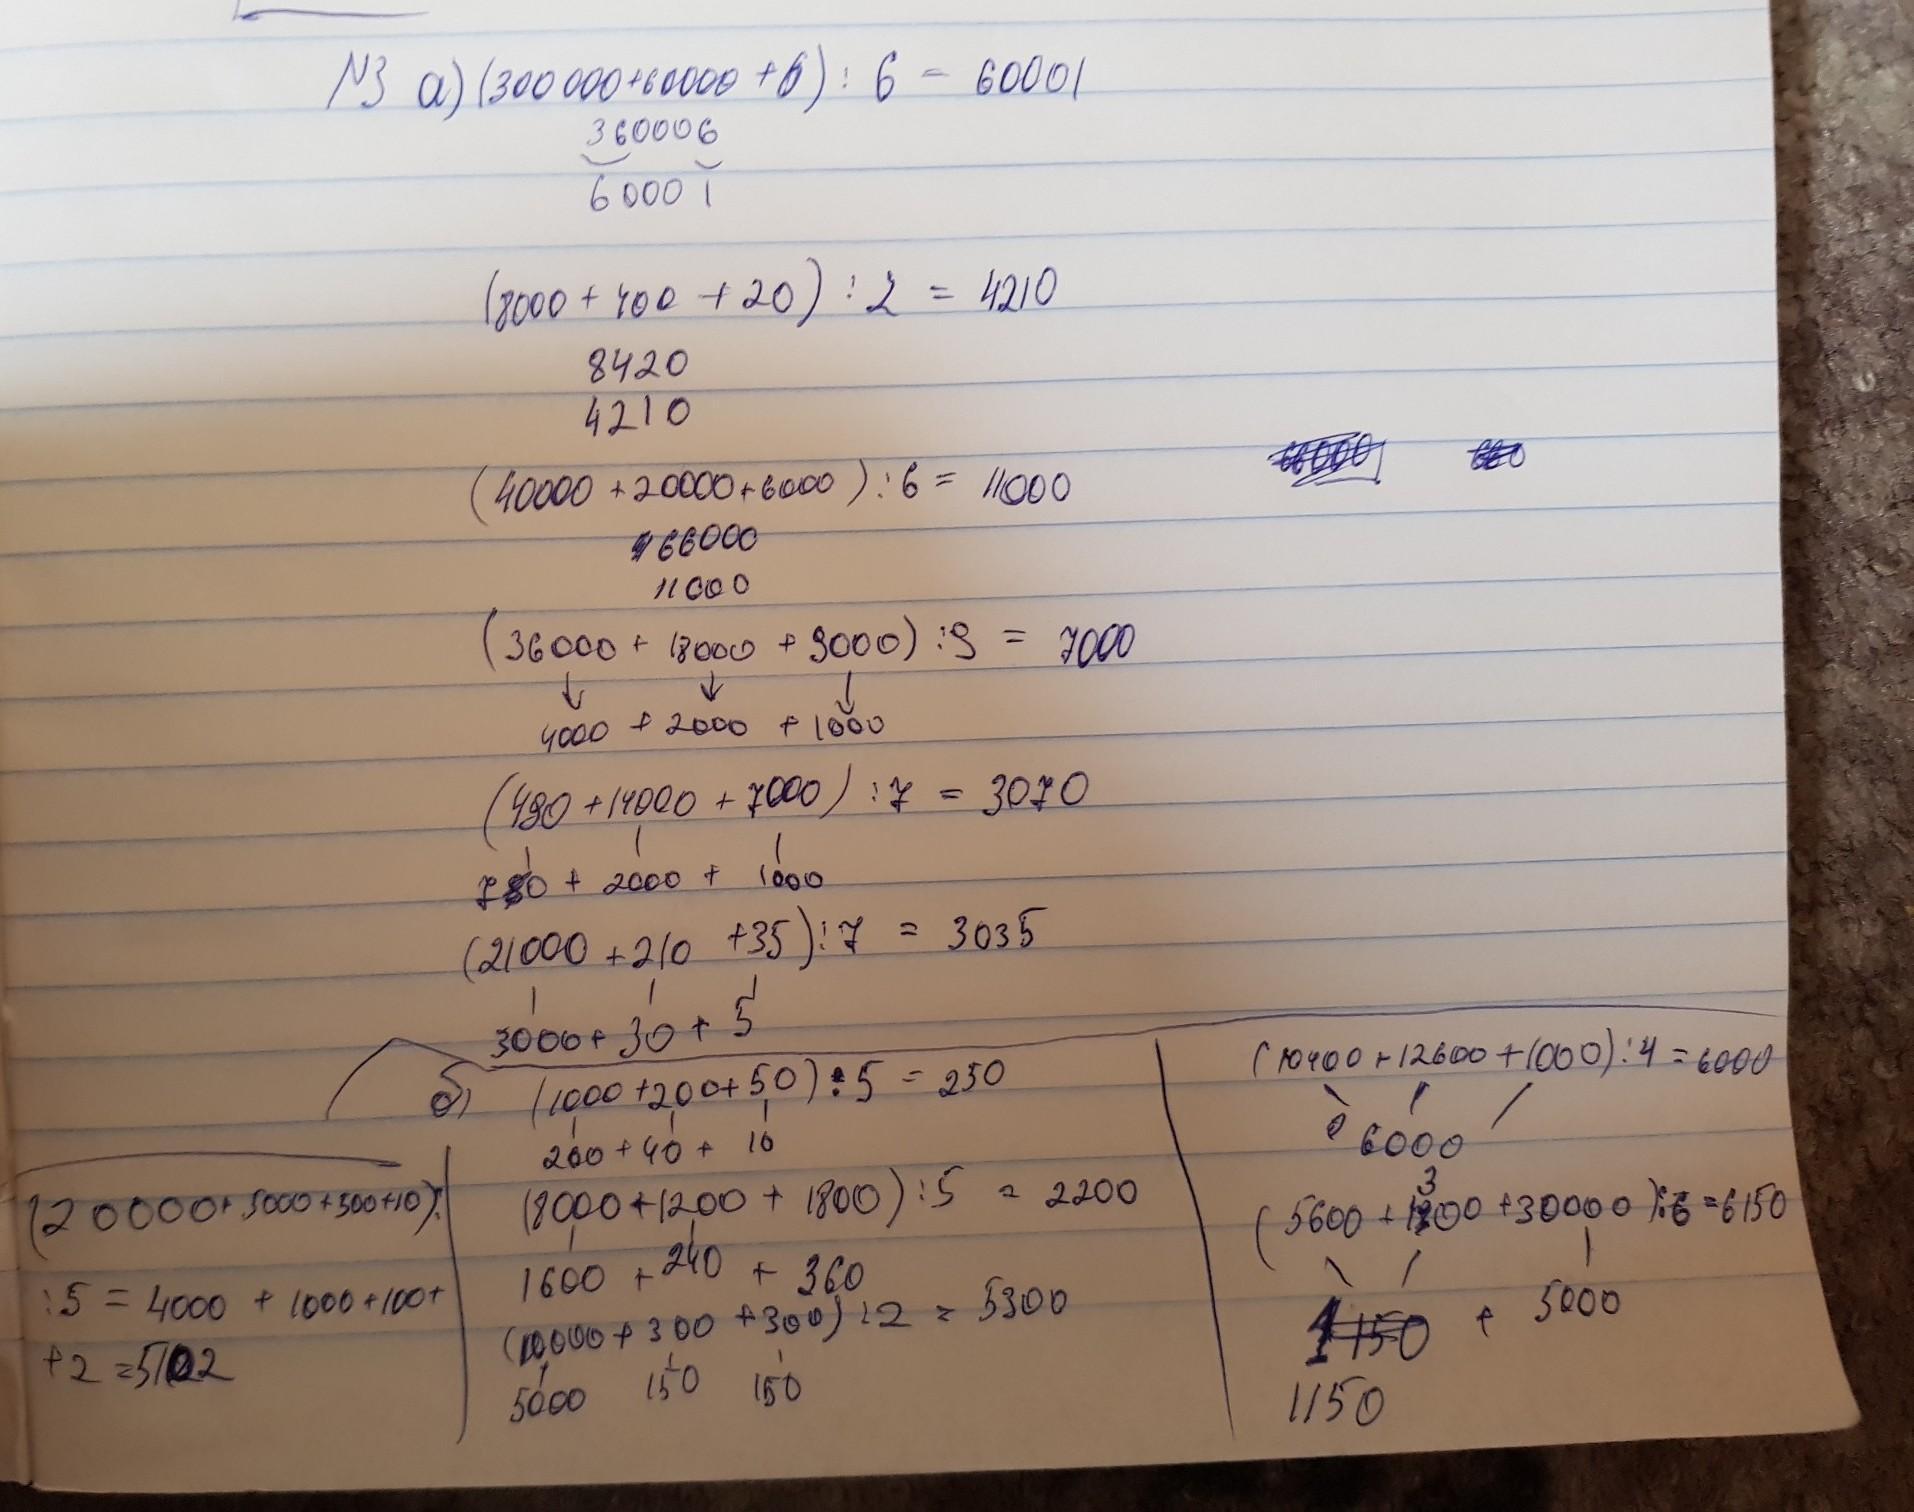 N3 а) (300 000+60000 +6) : 6 = 60001
360006
60001
(8000 + 400 + 20) : 2 = 4210
8420
4210
(40000 + 20000+6000) : 6 = 11000
66000
11000
(36000 + 18000 + 9000) : 9 = 7000
4000 + 2000 + 1000
(490 + 14000 + 7000) : 7 = 3070
70 + 2000 + 1000
(21000 + 210 + 35) : 7 = 3035
3000 + 30 + 5
б) (1000 + 200 + 50) : 5 = 250
200 + 40 + 10
(8000 + 1200 + 1800) : 5 = 2200
1600 + 240 + 360
(10000 + 300 + 300) : 2 = 5300
5000 150 150
(20000 + 5000 + 500 + 10) :
: 5 = 4000 + 1000 + 100 +
+ 2 = 5102
(10400 + 12600 + 1000) : 4 = 6000
6000
(5600 + 1300 + 30000) : 6 = 6150
+ 5000
1150